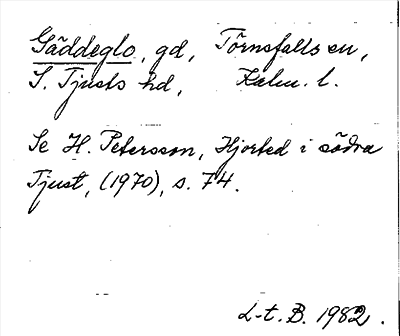 Gäddeglo, gd, Törnsfalls sn,
S. Tjusts hd, Kalm. l.
Se H. Petersson, Hjorted i södra
Tjust, (1970), s. 74.
L-t. B. 1982.